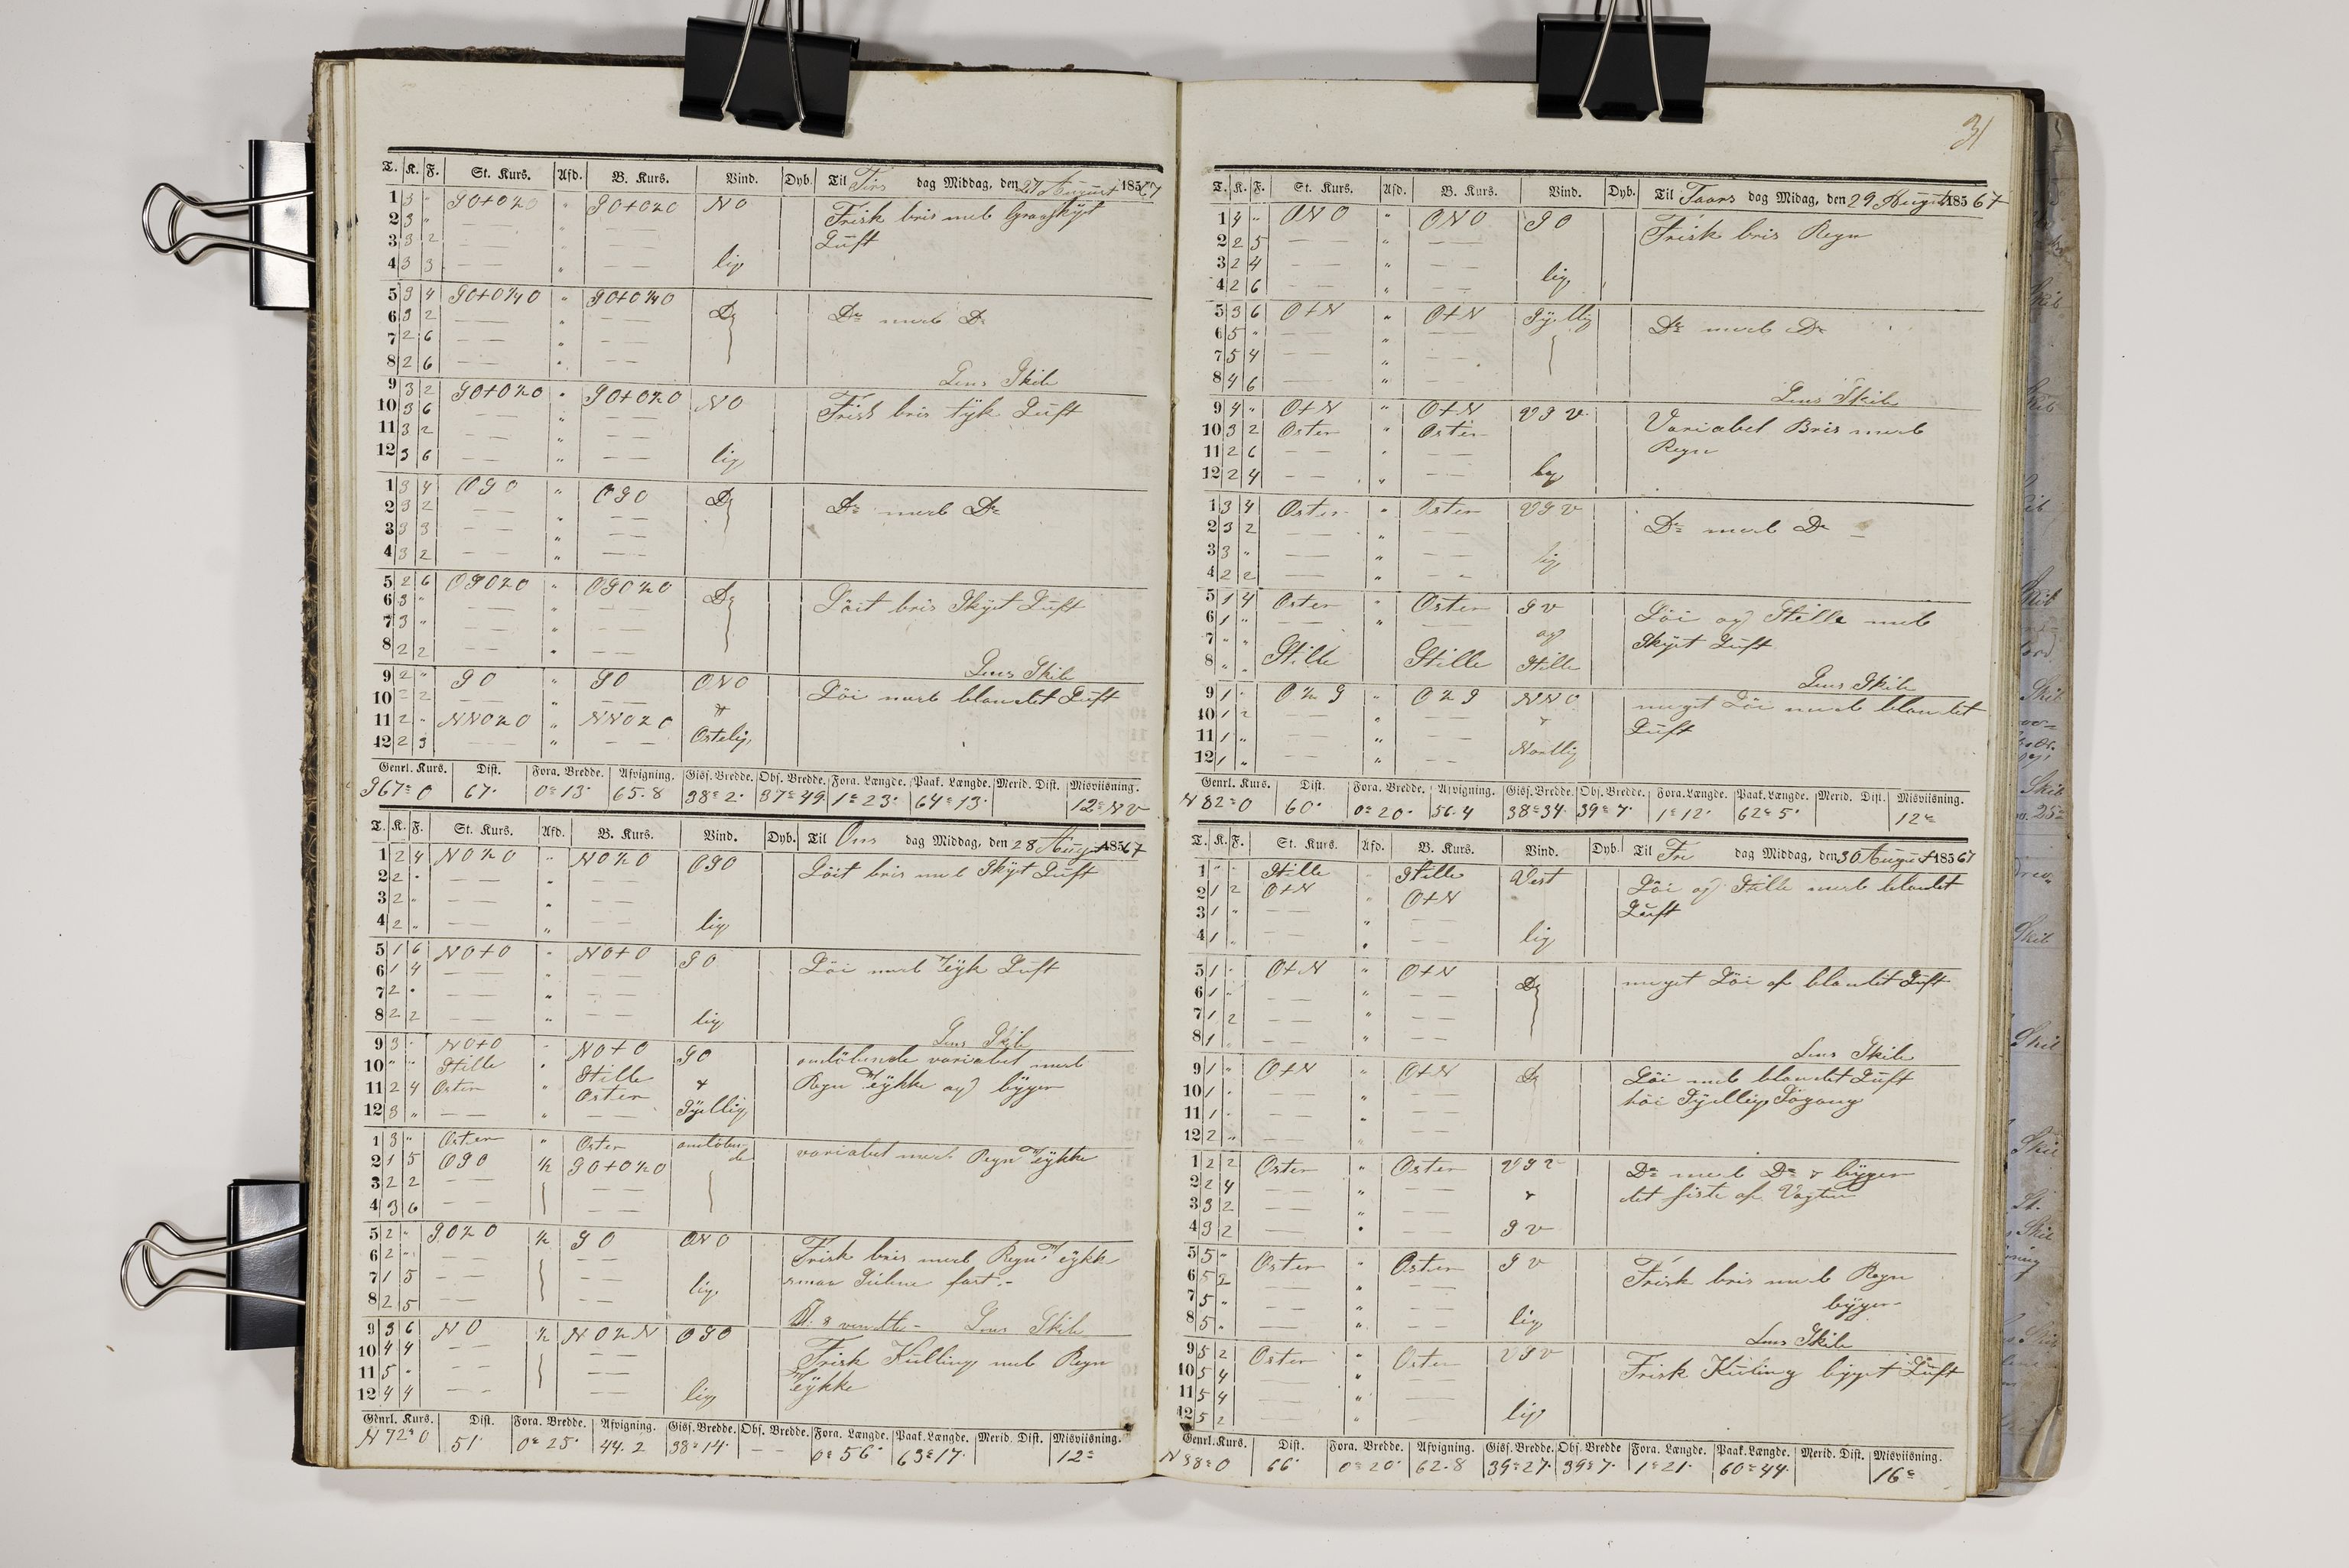 31
T. K. F. St. Kurs. Afd. B. Kurs. Vind. Dyb. Til Tirs dag Middag, den 27 August 18567
1 3 " SO+O½O " SO+O½O NO Frisk bris med Graaskyet
2 3 " — — " — — Luft
3 3 2 — — " — —
4 3 3 — — " — — lig
5 3 4 SO+O¼O " SO+O¼O Do Do med Do
6 3 2 — — " — —
7 2 6 — — " — —
8 2 6 — — " — — Lens Skib
9 3 2 SO+O½O " SO+O½O NO Frisk bris tÿk Luft
10 3 6 — — " — —
11 3 2 — — " — —
12 3 6 — — " — — lig
1 3 4 OSO " OSO Do Do med Do
2 3 2 — — " — —
3 3 3 — — " — —
4 3 2 — — " — —
5 2 6 OSO½O " OSO½O Do Löit bris Skÿet Luft
6 3 " — — " — —
7 3 " — — " — —
8 2 2 — — " — — Lens Skib
9 2 " SO " SO ONO Löi med blandet Luft
10 2 2 — — " — —
11 2 " NNO½O " NNO½O
12 2 3 — — " — — Ostelig
Genrl. Kurs. Dist. Fora. Bredde. Afvigning. Gisf. Bredde. Obs. Bredde. Fora. Længde. Paak. Længde. Merid. Dist. Misviisning.
S 67° O 67' 0° 13' 65.8 38° 2' 37° 49' 1° 23' 64° 13' 12° NV
T. K. F. St. Kurs. Afd. B. Kurs. Vind. Dyb. Til Ons dag Middag, den 28 Augst 18567
1 2 4 NO½O " NO½O OSO Löit bris med Skÿet Luft
2 2 " — — " — —
3 2 " — — " — —
4 2 " — — " — — lig
5 1 6 NO+O " NO+O SO Löi med Tÿk Luft
6 1 4 — — " — —
7 2 " — — " — —
8 2 2 — — " — — lig Lens Skib
9 3 " NO+O " NO+O SO omlöbende variabel med
10 " " Stille " Stille Regn Tÿkke og bÿger
11 2 4 Osten " Osten
12 3 " — — " — — Sÿdlig
1 3 " Osten " Osten omlöben- variabel med Regn Tÿkke
2 1 5 OSO ½ SO+O½O de
3 2 2 — — — —
4 3 6 — — — —
5 2 " SO½O ½ SO ONO Frisk bris med Regn Tÿkke
6 2 " — — — — smaa Seilene fast.-
7 1 5 — — — — lig
8 2 5 — — — — Kl. 8 vendte - Lens Skib
9 3 6 NO ½ NO½N OSO Frisk Kulling med Regn
10 4 4 — — — — Tÿkke
11 5 " — — — —
12 4 4 — — — — lig
Genrl. Kurs. Dist. Fora. Bredde. Afvigning. Gisf. Bredde. Obs. Bredde. Fora. Længde. Paak. Længde. Merid. Dist. Misviisning.
N 72° O 51' 0° 25' 44.2 38° 14' — — 0° 56' 63° 17' 12°
T. K. F. St. Kurs. Afd. B. Kurs. Vind. Dyb. Til Taars dag Midag, den 29 August 18567
1 4 " ONO " ONO SO Frisk bris Regn
2 2 5 — — " — —
3 2 4 — — " — — lig
4 2 6 — — " — —
5 3 6 O+N " O+N Sÿdlig Do med Do
6 5 " — — " — —
7 5 4 — — " — —
8 4 6 — — " — Lens Skib
9 4 " O+N " O+N VSV Variabel Bris med
10 3 2 Osten " Osten Regn
11 2 6 — — " — —
12 2 4 — — " — —
1 3 4 Osten " Osten VSV Do med Do
2 3 2 — — " — —
3 3 " — — " — — lig
4 2 2 — — " — —
5 1 4 Osten " Osten SV Löi og Stille med
6 1 " — — " — — og Skÿet Luft
7 " " Stille Stille Stille
8 " " Lens Skib
9 1 " O½S " O½S NNO meget Löi med blandet
10 1 2 — — " — — Luft
11 1 " — — " — — Nordlig
12 1 " — — " — —
Genrl. Kurs. Dist. Fora. Bredde. Afvigning. Gisf. Bredde. Obs. Bredde. Fora. Længde. Paak. Længde. Merid. Dist. Misviisning.
N 82° O 60' 0° 20' 56.4 38° 34' 39° 7' 1° 12' 62° 5' 12°
T. K. F. St. Kurs. Afd. B. Kurs. Vind. Dyb. Til Fre dag Middag, den 30 August 18567
1 " " Stille " Stille Vest Löi og Stille med blandet
2 1 2 O+N " O+N Luft
3 1 " — — " — —
4 1 " — — " — — lig
5 1 " O+N " O+N Do meget Löi af blandet Luft
6 1 " — — " — —
7 1 2 — — " — —
8 1 " — — " — — Lens Skib
9 1 " O+N " O+N Do Löi med blandet Luft
10 1 " — — " — — höi Sÿdlig Sögang
11 1 " — — " — —
12 2 " — — " — —
1 2 2 Osten " Osten VSV Do med Do & bÿger
2 2 4 — — " — — det siste af Vagten
3 3 2 — — " — —
4 3 2 — — " — — SV
5 5 " Osten " Osten SV Frisk bris med Regn
6 5 2 — — " — — bÿger-
7 5 " — — " — —
8 5 " — — " — — lig Lens Skib
9 5 2 Osten " Osten VSV Frisk Kuling bÿget Luft
10 5 4 — — " — —
11 5 4 — — " — —
12 5 2 — — " — — lig
Genrl. Kurs. Dist. Fora. Bredde. Afvigning. Gisf. Bredde. Obs. Bredde Fora. Længde. Paak. Længde. Merid. Dist. Misviisning.
66' 0° 20' 62.8 39° 27' 39° 7' 1° 21' 60° 44' 16°